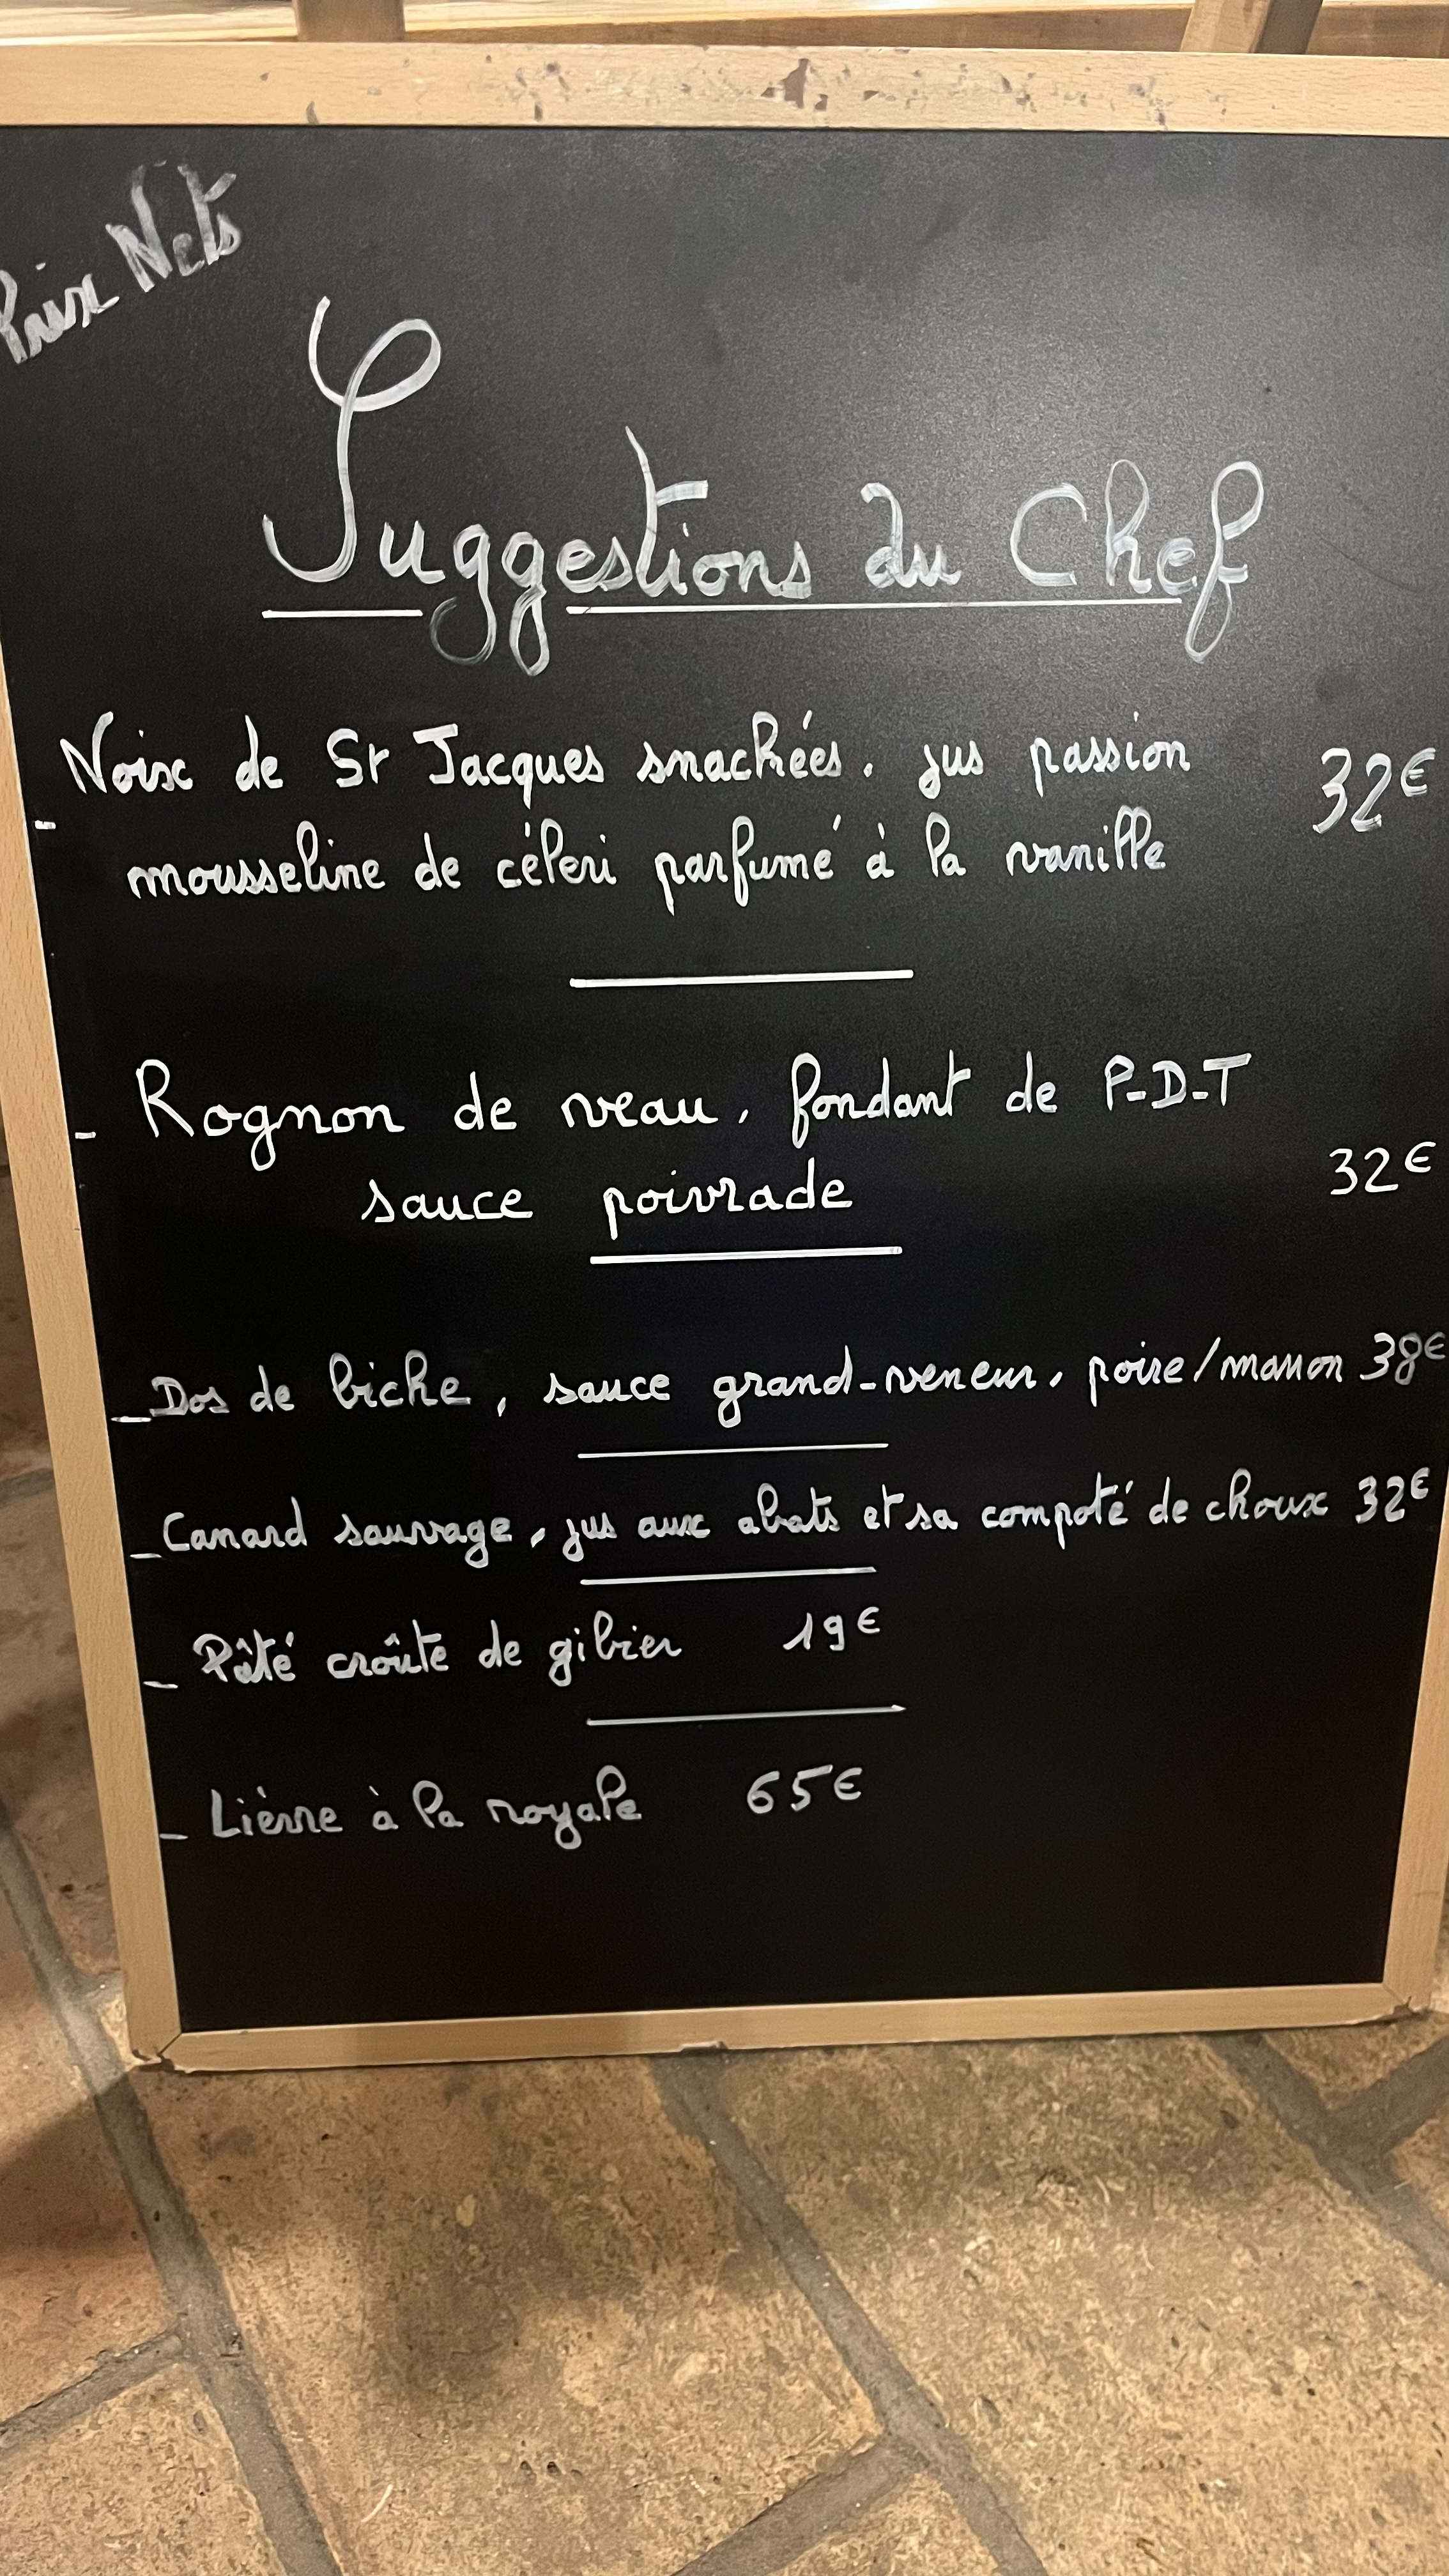 Prix Nets
Suggestions du Chef
Noix de St Jacques snackées, jus passion 32€
- mousseline de céleri parfumé à la vanille
- Rognon de veau, fondant de P-D-T
sauce poivrade 32€
- Dos de biche, sauce grand-veneur, poire/marron 38€
- Canard sauvage, jus aux abats et sa compoté de choux 32€
- Pâté croûte de gibier 19€
- Lièvre à la royale 65€